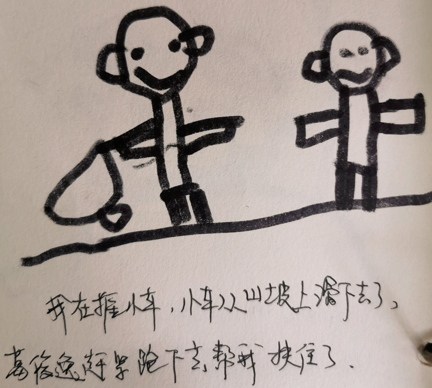 我在推小车，小车从山坡上滑下去了，
高俊逸赶紧跑下去帮我扶住了。